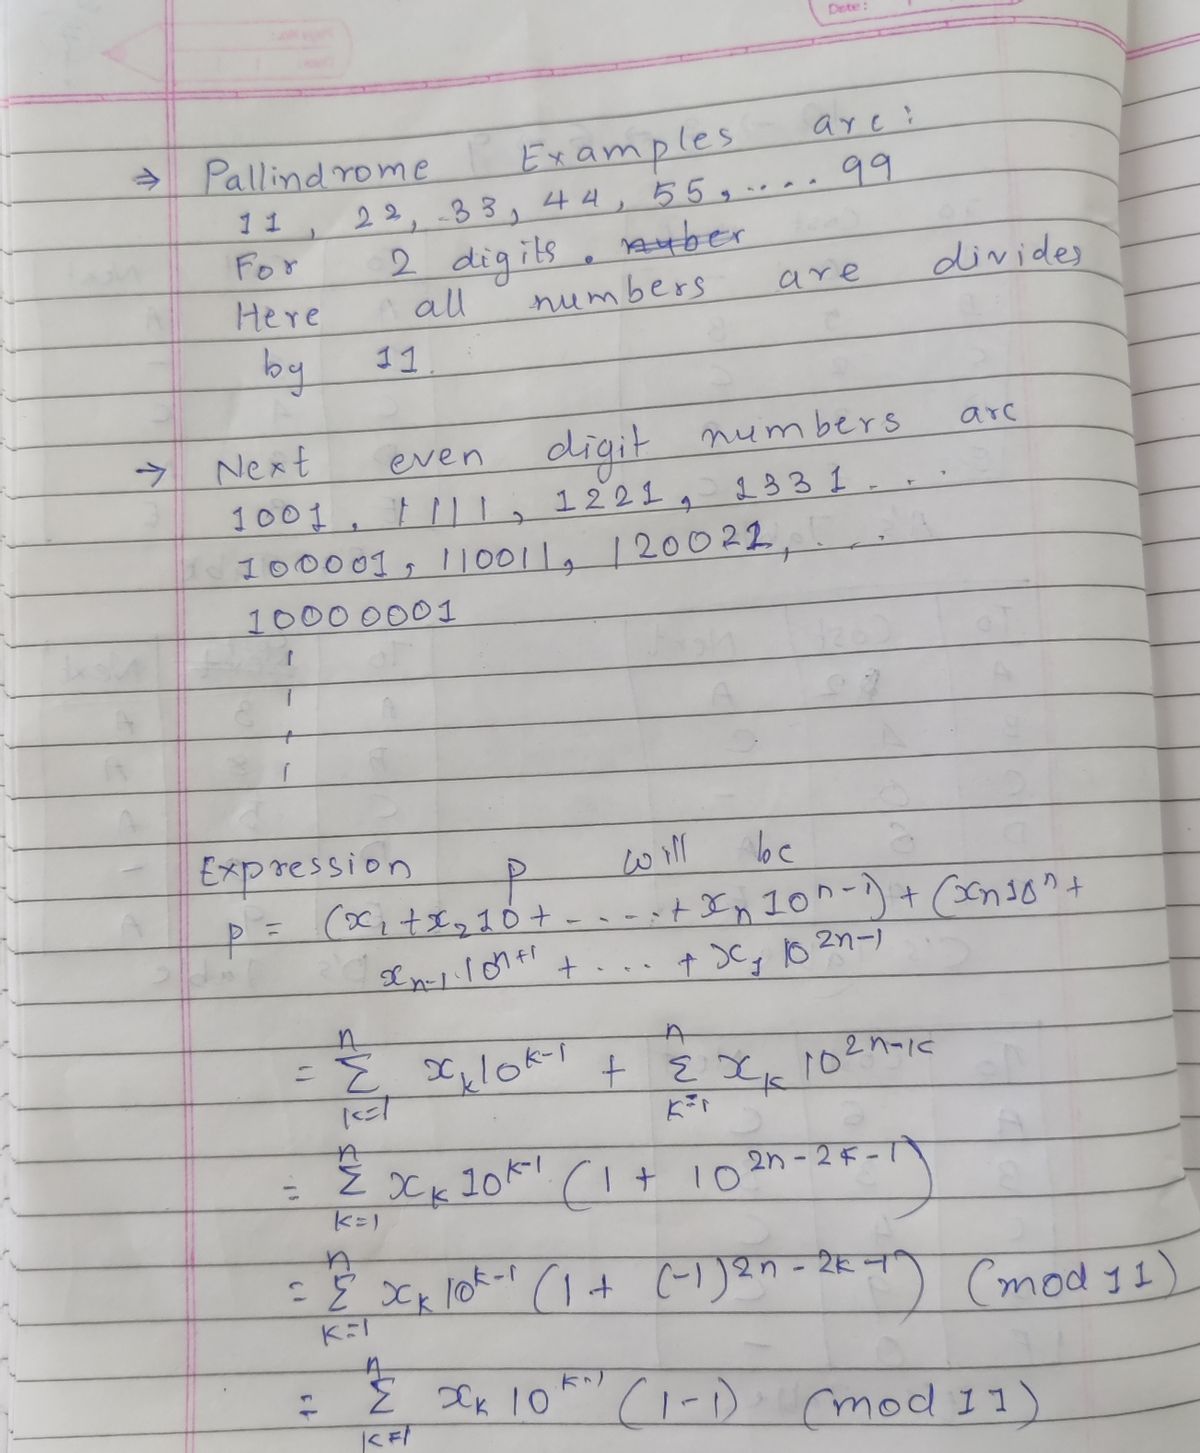 Date:
⇒ Pallindrome Examples are:
11, 22, 33, 44, 55, .... 99
For 2 digits.
Here all numbers are divides
by 11.
→ Next even digit numbers are
1001, 1111, 1221, 1331 ...
100001, 110011, 120021, ....
10000001
Expression p will be
p = (x₁ + x₂10 + ..... + xₙ10ⁿ⁻¹) + (xₙ10ⁿ +
xₙ₋₁.10ⁿ⁺¹ + ... + x₁ 10²ⁿ⁻¹
= n Σ k=1 xₖ10ᵏ⁻¹ + n Σ k=1 xₖ 10²ⁿ⁻ᵏ
= n Σ k=1 xₖ 10ᵏ⁻¹ (1 + 10²ⁿ⁻²ᵏ⁻¹)
= n Σ k=1 xₖ 10ᵏ⁻¹ (1 + (-1)²ⁿ⁻²ᵏ⁻¹) (mod 11)
= n Σ k=1 xₖ 10ᵏ⁻¹ (1-1) (mod 11)